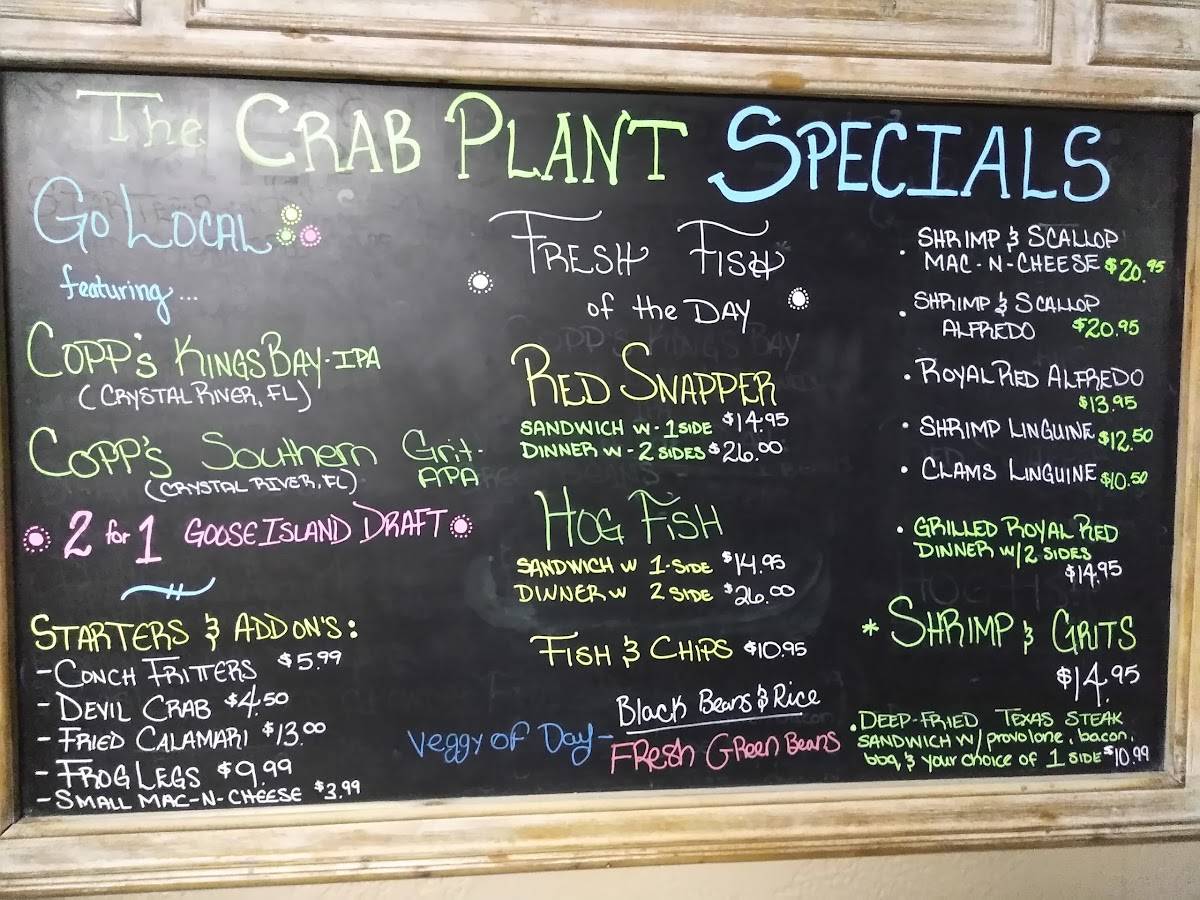 The CRAB PLANT SPECIALS
GO LOCAL
featuring...
COPP'S KINGS BAY-IPA
(CRYSTAL RIVER, FL)
COPP'S Southern Grit-
APA
(CRYSTAL RIVER, FL)
2 for 1 GOOSE ISLAND DRAFT
STARTERS & ADD ON'S:
- CONCH FRITTERS $5.99
- DEVIL CRAB $4.50
- FRIED CALAMARI $13.00
- FROG LEGS $9.99
- SMALL MAC-N-CHEESE $3.99
FRESH FISH
of the DAY
RED SNAPPER
SANDWICH W - 1 SIDE $14.95
DINNER W - 2 SIDES $26.00
HOG FISH
SANDWICH W 1-SIDE $14.95
DINNER W 2 SIDE $26.00
FISH & CHIPS $10.95
Black Beans & Rice
Veggy of Day - FRESH GREEN BEANS
• SHRIMP & SCALLOP
MAC-N-CHEESE $20.95
• SHRIMP & SCALLOP
ALFREDO $20.95
• ROYAL RED ALFREDO
$13.95
• SHRIMP LINGUINE $12.50
• CLAMS LINGUINE $10.50
• GRILLED ROYAL RED
DINNER W/2 SIDES
$14.95
* SHRIMP & GRITS
$14.95
• DEEP-FRIED TEXAS STEAK
SANDWICH W/ provolone, bacon,
bbq, & your choice of 1 SIDE $10.99